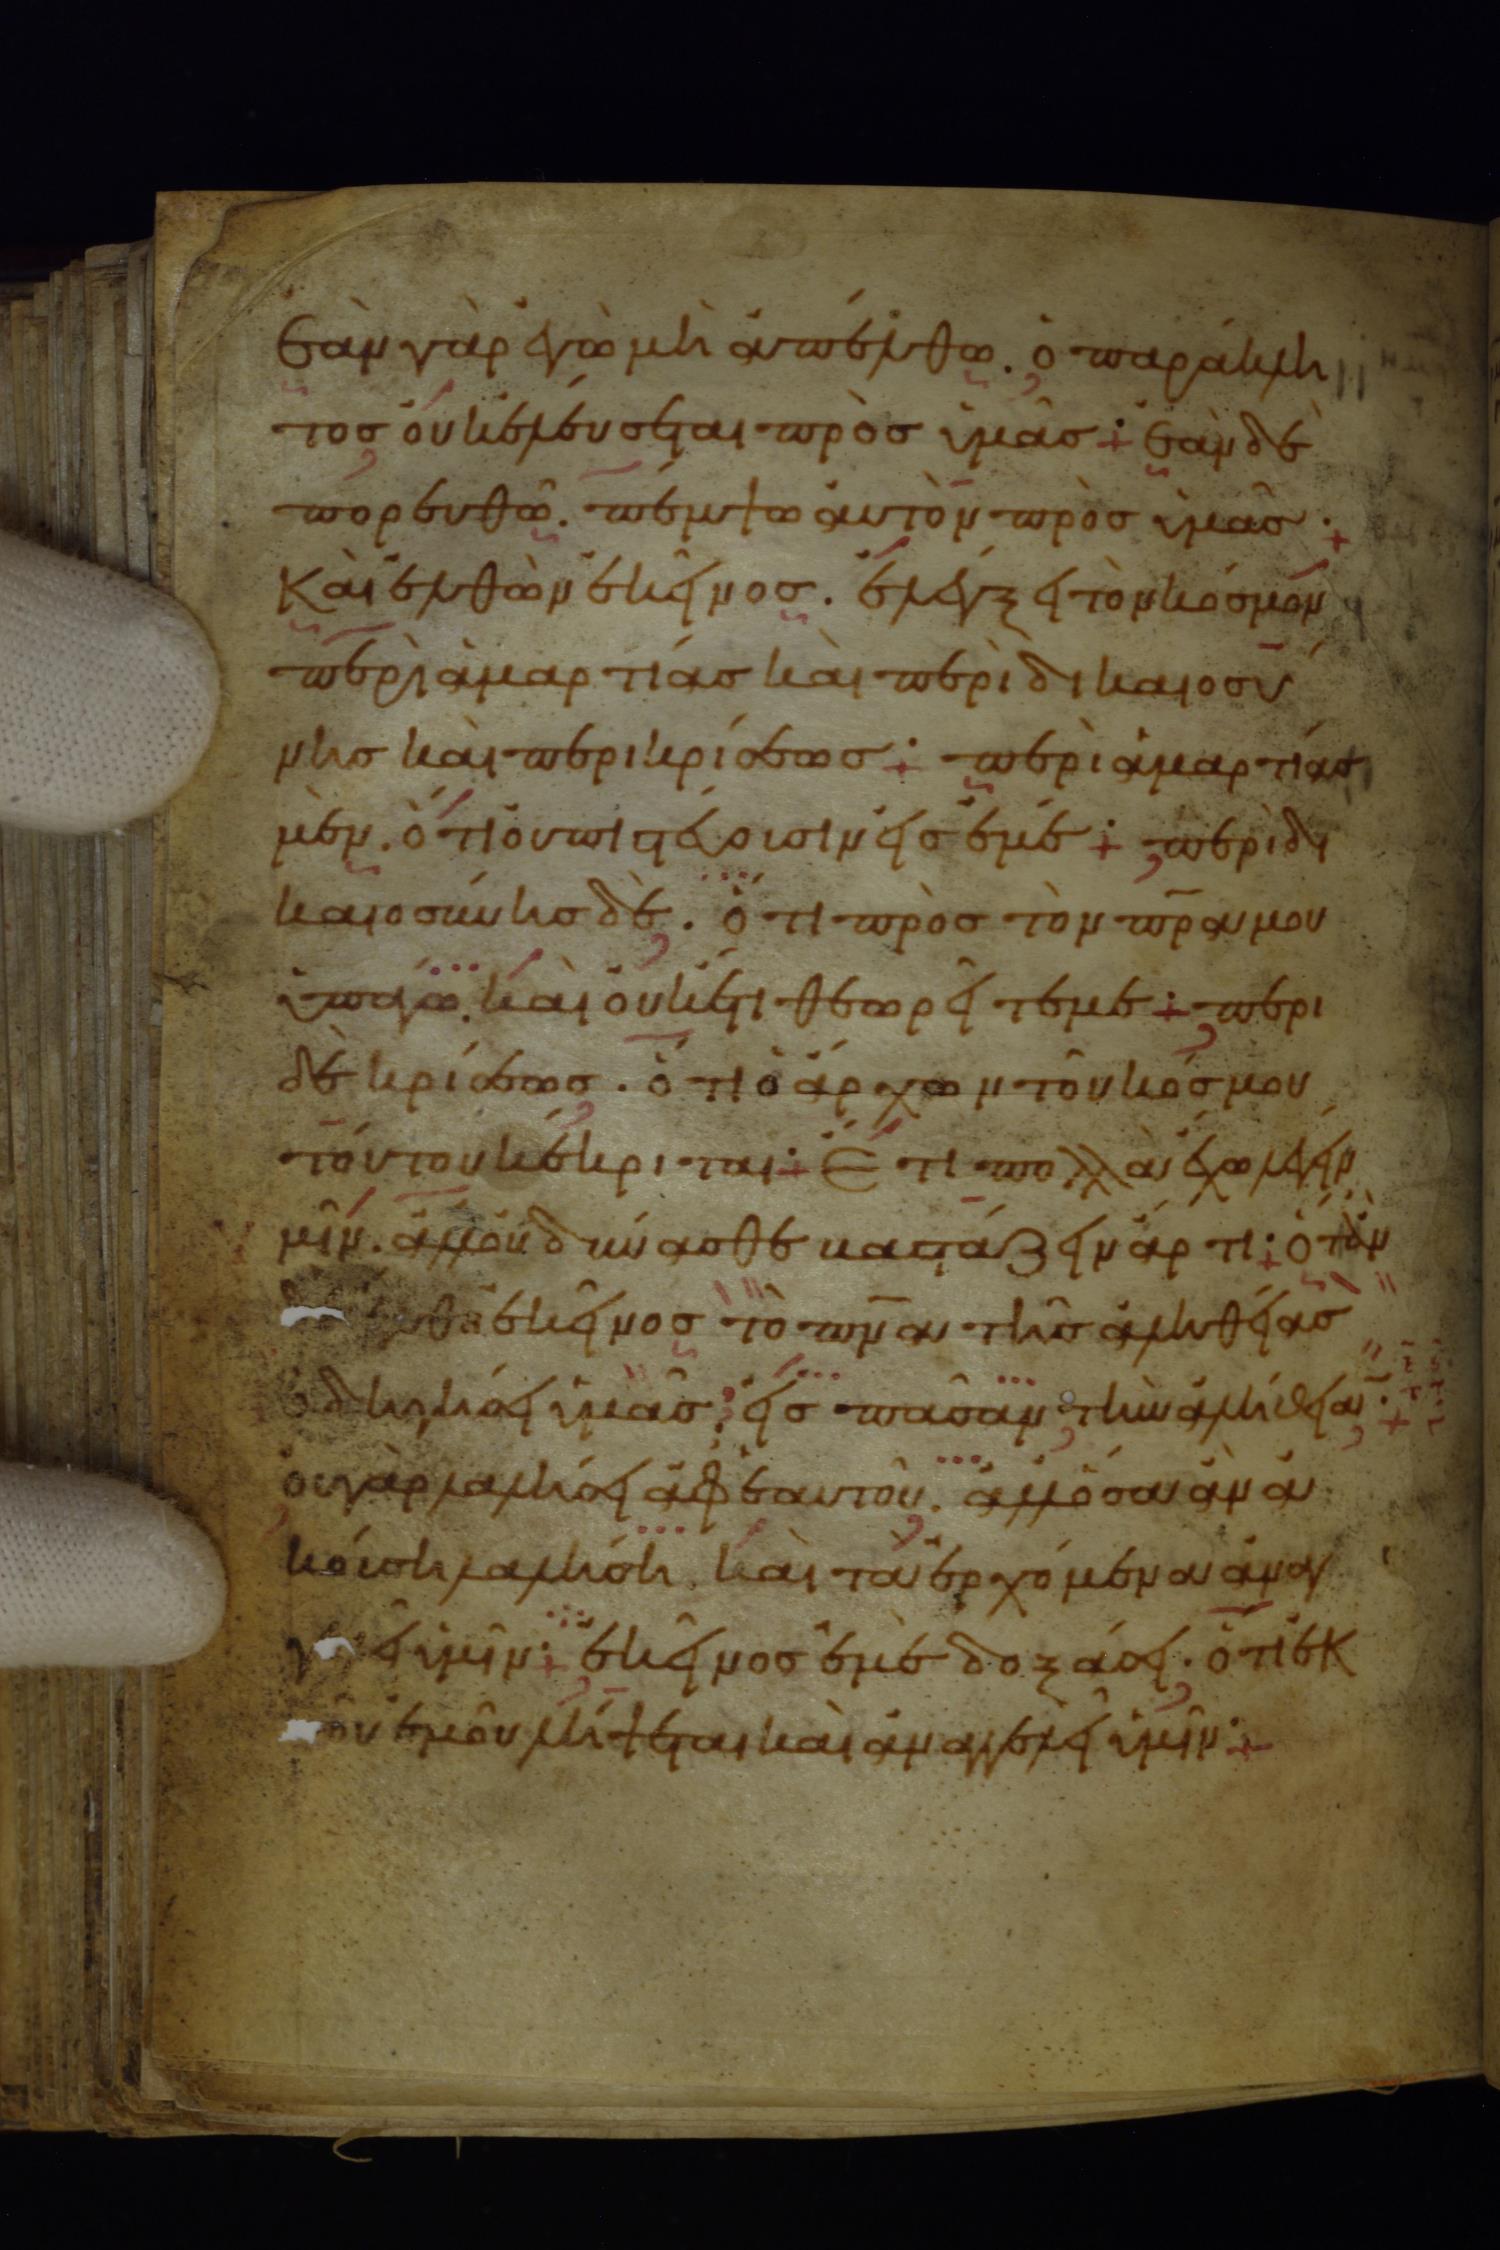 Ἐὰν γὰρ ἐγὼ μὴ ἀπέλθω. ὁ παράκλη
τος οὐκ ἐλεύσεται πρὸς ὑμᾶς: ἐὰν δὲ
πορευθῶ. πέμψω αὐτὸν πρὸς ὑμᾶς:
Καὶ ἐλθὼν ἐκεῖνος. ἐλέγξει τὸν κόσμον
περὶ ἁμαρτίας καὶ περὶ δικαιοσύ
νης καὶ περι κρίσεως: περὶ ἁμαρτίας
μὲν. ὅτι οὐ πιστεύουσιν εἰς ἐμέ: περὶ δι
καιοσύνης δὲ. ὅτι πρὸς τὸν πρ̅α μου
ὑπάγω. καὶ οὐκέτι θεωρεῖτε με: περι
δὲ κρίσεως. ὅτι ὁ ἄρχων τοῦ κόσμου
τούτου κέκριται: Ἔτι πολλὰ ἔχω λέγειν
μῖν. ἀλλ' οὐ δύνασθε βαστάζειν ἄρτι: ὅταν
ἐκεῖνος τὸ πν̅α τῆς ἀληθείας
ὁδηγήσει ὑμᾶς: εἰς πᾶσαν τὴν ἀλήθειαν:
οὐ γὰρ λαλήσει ἀφ' ἑαυτοῦ. ἀλλ' ὅσα ἂν ἀ
κούση λαλήση. καὶ τὰ ἐρχόμενα ἀναγ
γ εῖ ὑμῖν: ἐκεῖνος ἐμὲ δοξάσει. ὅτι ἐκ
οῦ ἐμοῦ λήψεται καὶ ἀναγγελεῖ ὑμῖν: